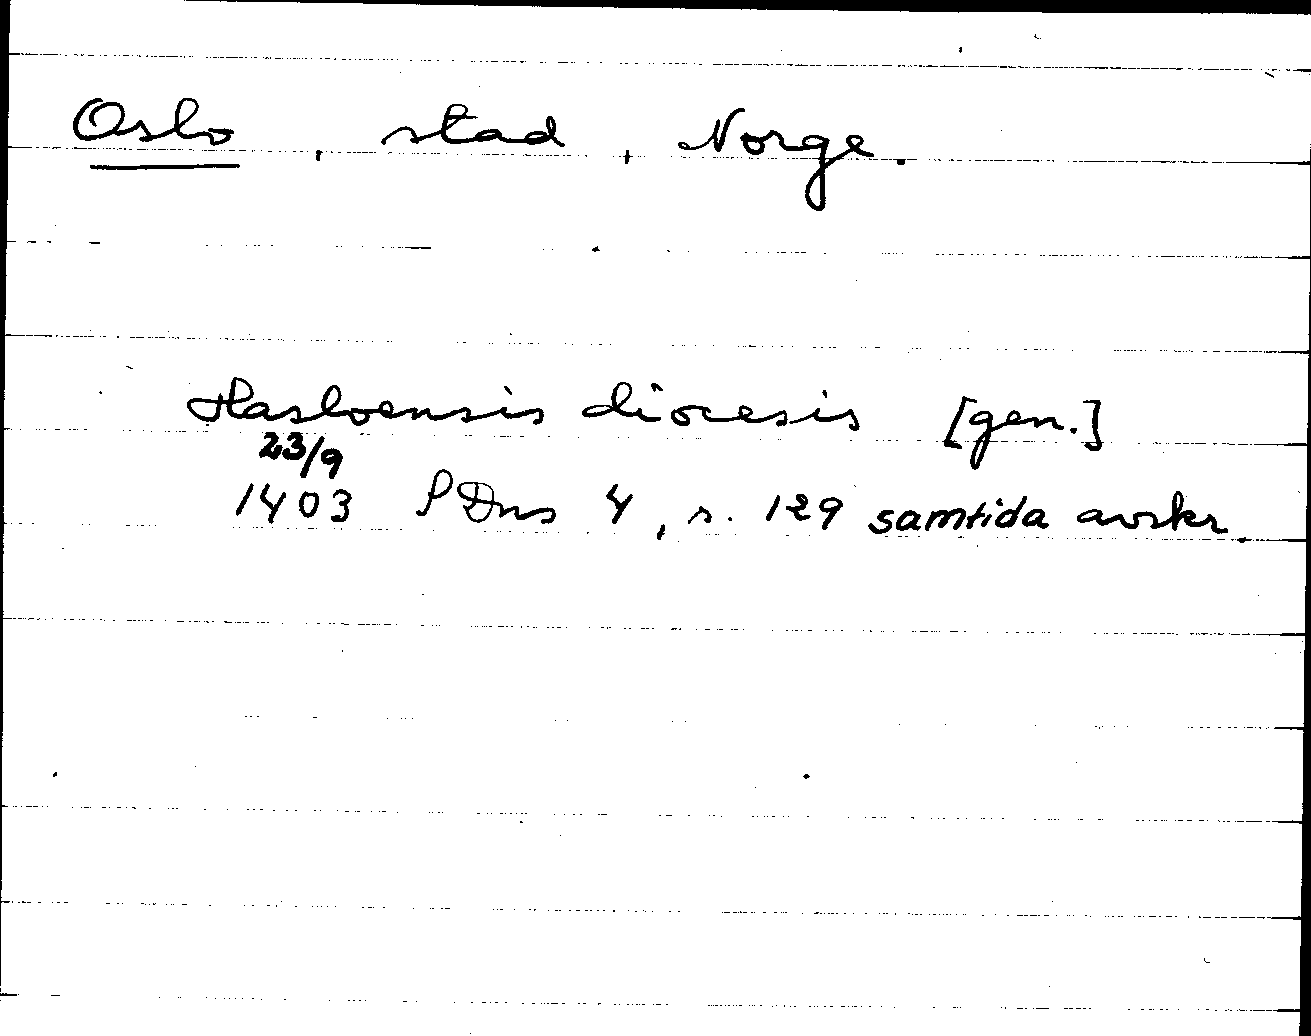 Oslo, stad, Norge.
Hasloensis diocesis [gen.]
23/9
1403 SDns 4, s. 129 samtida avskr.